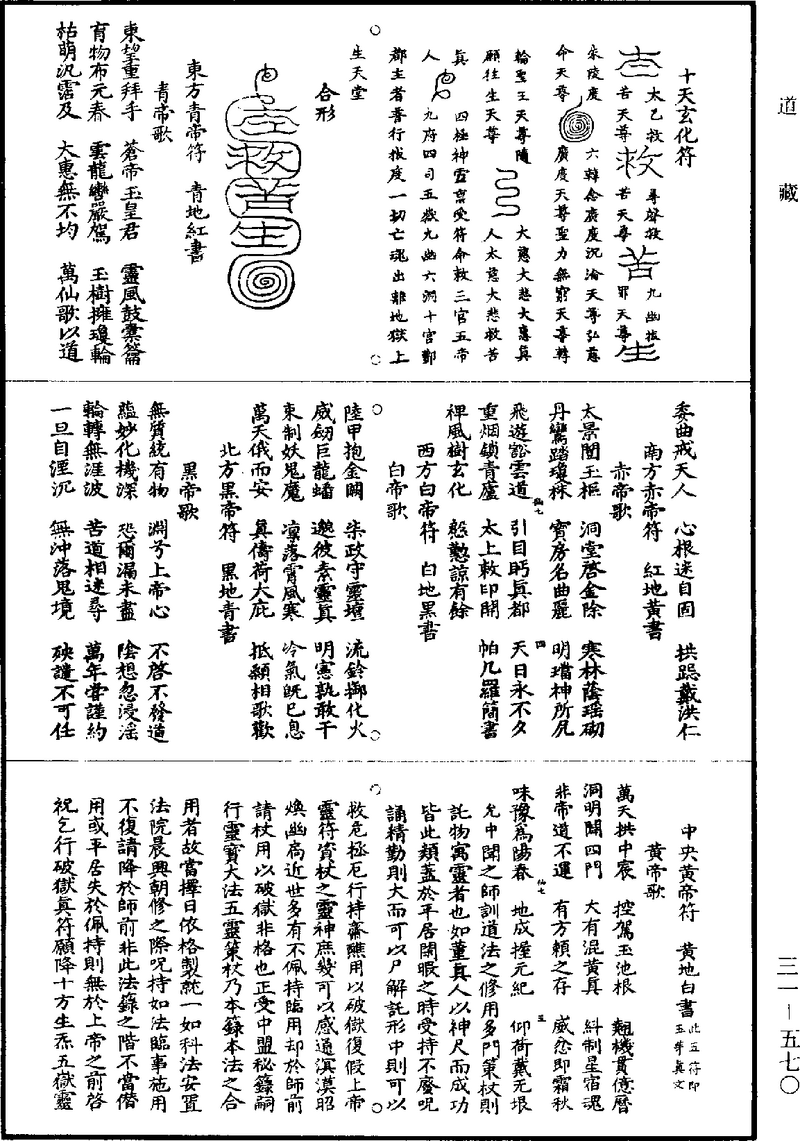 道藏
三一—五七〇
十天玄化符
太乙救苦天尊
尋聲救苦天尊
九幽拔罪天尊
朱陵度命天尊
六韓念廣度沉淪天尊弘慈廣度天尊聖力無窮天尊轉
輪聖王天尊隨願往生天尊
大慈大悲大惠真人太慈大悲救苦
真人
四極神靈禀受符命救三官五帝九府四司五嶽九幽六洞十宮酆
都主者普行拔度一切亡魂出離地獄上
生天堂
合形
東方青帝符 青地紅書
青帝歌
東望重拜手 蒼帝玉皇君 靈風鼓橐籥
育物布元春 雲龍轡嚴駕 玉樹擁瓊輪
枯萌沉霑及 大惠無不均 萬仙歌以道
委曲戒天人 心根迷自固 拱跽戴洪仁
南方赤帝符 紅地黃書
赤帝歌
太景闓玉樞 洞堂啓金除 寒林蔭瑶砌
丹鸞踏瓊株 寶房名曲麗 明璫神所凥
飛遊豁雲道 引目眄真都 天日永不夕
重烟鎖青廬 太上敕印開 帕几羅簡書
裨風樹玄化 慇懃諒有餘
西方白帝符 白地黑書
白帝歌
陸甲抱金闕 柒政守靈壇 流鈴擲化火
威劒巨龍蟠 邀彼素靈真 明憲孰敢干
束制妖鬼魔 凛落霄風寒 冷氣既已息
萬天俄而安 真儔荷大庇 抵願相歌歡
北方黑帝符 黑地青書
黑帝歌
無質統有物 淵兮上帝心 不啓不發造
蘊妙化機深 恐爾漏未盡 陰想忽浸淫
輪轉無涯波 苦道相迷尋 萬年當謹約
一旦自湮沉 無沖落鬼境 殃譴不可任
中央黃帝符 黃地白書 此五符即五芽真文
黃帝歌
萬天拱中宸 控駕玉池根 翹機貫億曆
洞明開四門 大有混黃真 糾制星宿魂
非帝道不運 有方賴之存 威忿即霜秋
味豫為陽春 地成握元紀 仰荷戴无垠
允中聞之師訓道法之修用多門策杖則
託物寓靈者也如董真人以神尺而成功
皆此類蓋於平居閑暇之時受持不廢呪
誦精勤則大而可以尸解託形中則可以
救危拯厄行持齋醮用以破獄復假上帝
靈符資杖之靈神庶幾可以感通溟漠昭
煥幽扃近世多有不佩持臨用却於師前
請杖用以破獄非格也正受中盟秘籙嗣
行靈寶大法五靈策杖乃本籙本法之合
用者故當擇日依格製就一如科法安置
法院晨興朝修之際呪持如法臨事施用
不復請降於師前非此法籙之階不當僭
用或平居失於佩持則無於上帝之前啓
祝乞行破獄真符願降十方生炁五嶽靈